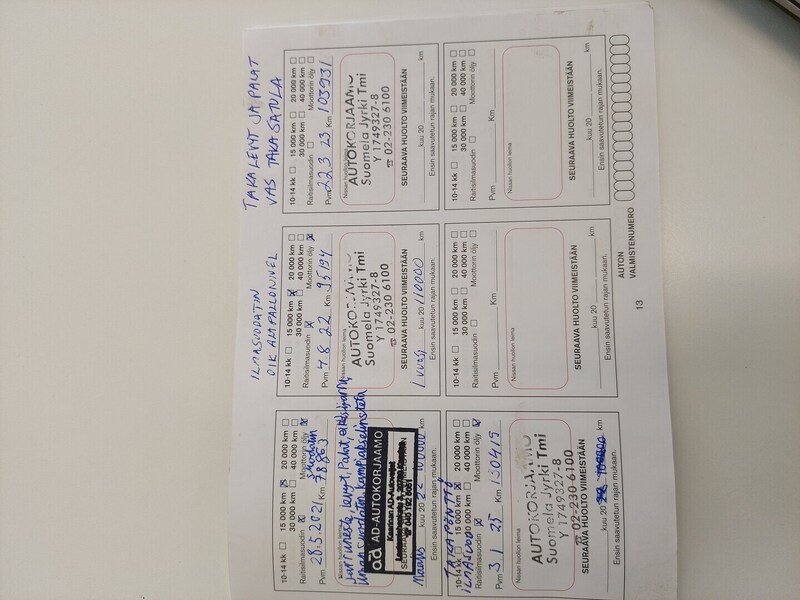 10-14 kk 15 000 km 20 000 km
30 000 km 40 000 km
Raitisilmasuodin Moottorin öljy
suodatin
Pvm 28.5.2021 Km 78863
Nissan huollon leima
Jarruneste, levyt, Palat,
ilmansuodatin
ad AD-AUTOKORJAAMO
Kaarinan AD-Autokorjaamo
kuu 20 22 km
Ensin saavutetun rajan mukaan.
ILMASUODATIN
OIK ALAPALLONIVEL
10-14 kk 15 000 km 20 000 km
30 000 km 40 000 km
Raitisilmasuodin Moottorin öljy
Pvm 4 8 22 Km 95194
Nissan huollon leima
AUTOKORJAAMO
Suomela Jyrki Tmi
Y 1749327-8
☎ 02-230 6100
SEURAAVA HUOLTO VIIMEISTÄÄN
1 vuosi kuu 20 110000 km
Ensin saavutetun rajan mukaan.
TAKA LEVYT JA PALAT
VAS TAKA SATULA
10-14 kk 15 000 km 20 000 km
30 000 km 40 000 km
Raitisilmasuodin Moottorin öljy
Pvm 22 3 23 Km 103931
Nissan huollon leima
AUTOKORJAAMO
Suomela Jyrki Tmi
Y 1749327-8
☎ 02-230 6100
SEURAAVA HUOLTO VIIMEISTÄÄN
kuu 20 km
Ensin saavutetun rajan mukaan.
10-14 kk 15 000 km 20 000 km
ILMASUOD 30 000 km 40 000 km
Raitisilmasuodin Moottorin öljy
Pvm 3 1 25 Km 130419
Nissan huollon leima
AUTOKORJAAMO
Suomela Jyrki Tmi
Y 1749327-8
☎ 02-230 6100
SEURAAVA HUOLTO VIIMEISTÄÄN
kuu 20 km
Ensin saavutetun rajan mukaan.
10-14 kk 15 000 km 20 000 km
30 000 km 40 000 km
Raitisilmasuodin Moottorin öljy
Pvm Km
Nissan huollon leima
SEURAAVA HUOLTO VIIMEISTÄÄN
kuu 20 km
Ensin saavutetun rajan mukaan.
10-14 kk 15 000 km 20 000 km
30 000 km 40 000 km
Raitisilmasuodin Moottorin öljy
Pvm Km
Nissan huollon leima
SEURAAVA HUOLTO VIIMEISTÄÄN
kuu 20 km
Ensin saavutetun rajan mukaan.
13
AUTON
VALMISTENUMERO